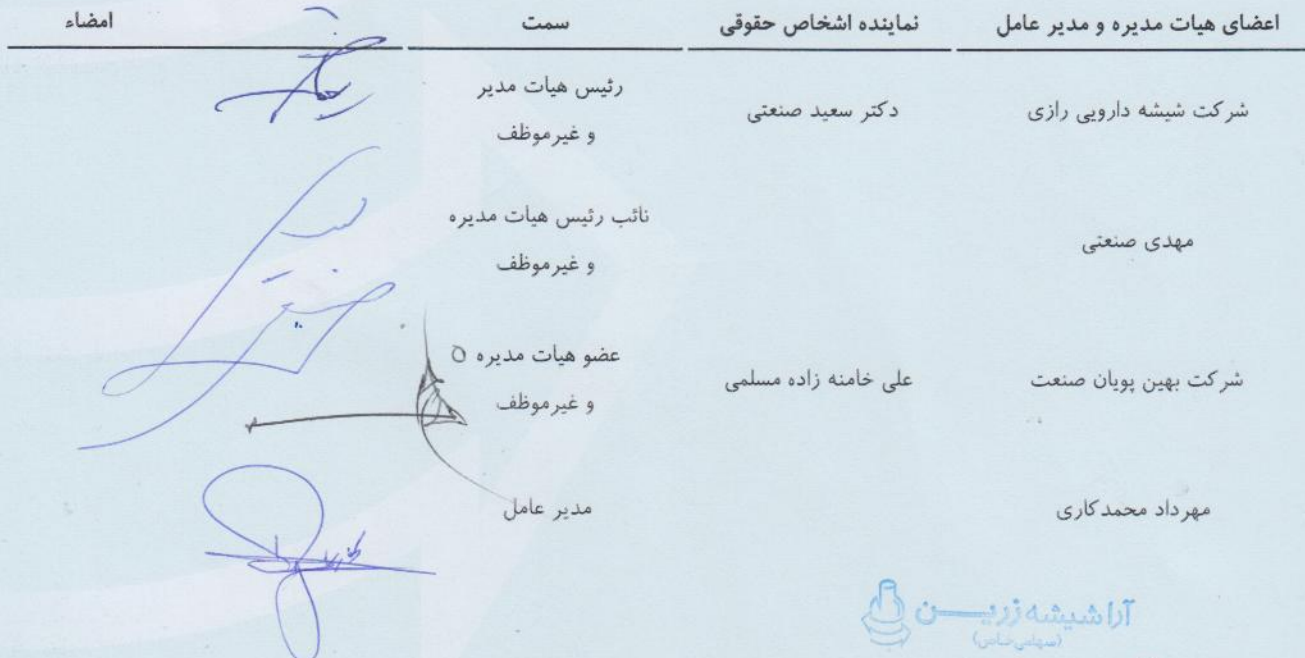 اعضای هیات مدیره و مدیر عامل نماینده اشخاص حقوقی سمت امضاء
شرکت شیشه دارویی رازی دکتر سعید صنعتی رئیس هیات مدیر
و غیرموظف
مهدی صنعتی نائب رئیس هیات مدیره
و غیرموظف
شرکت بهین پویان صنعت علی خامنه زاده مسلمی عضو هیات مدیره
و غیرموظف
مهرداد محمدکاری مدیر عامل
آرا شیشه زرین
(سهامی خاص)